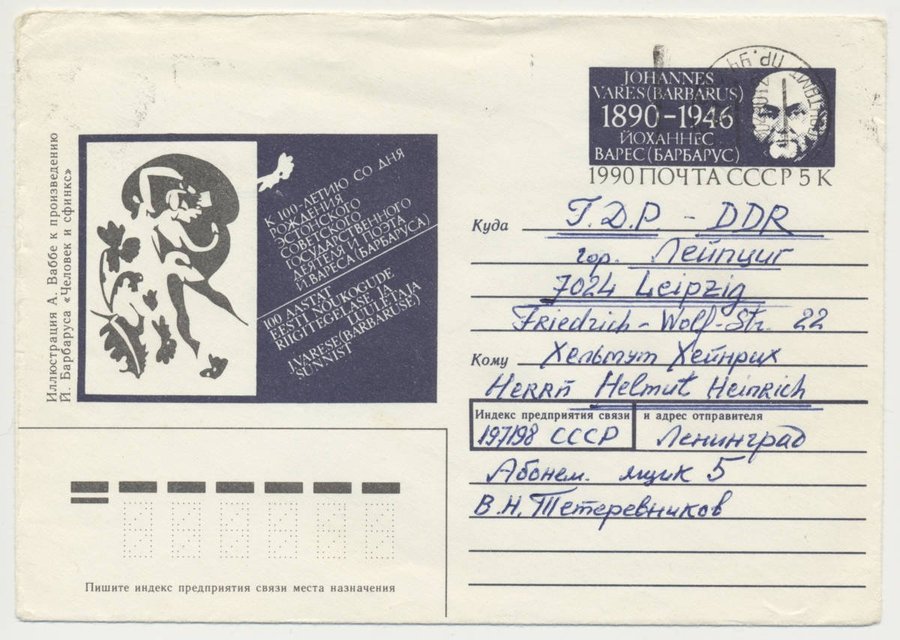 JOHANNES
VARES (BARBARUS)
1890-1946
ЙОХАННЕС
ВАРЕС (БАРБАРУС)
1990 ПОЧТА СССР 5 К
Иллюстрация А. Ваббе к произведению
Й. Барбаруса «Человек и сфинкс»
К 100-ЛЕТИЮ СО ДНЯ
РОЖДЕНИЯ
ЭСТОНСКОГО
СОВЕТСКОГО
ГОСУДАРСТВЕННОГО
ДЕЯТЕЛЯ И ПОЭТА
Й.ВАРЕСА (БАРБАРУСА)
100 AASTAT
EESTI NÕUKOGUDE
RIIGITEGELASE JA
LUULETAJA
J.VARESE (BARBARUSE)
SÜNNIST
Куда Г.Д.Р - DDR
гор. Лейпциг
7024 Leipzig
Friedrich-Wolf-Str. 22
Кому Хельмут Хейнрих
Herrn Helmut Heinrich
Индекс предприятия связи и адрес отправителя
197198 СССР Ленинград
Абонем. ящик 5
В.Н. Тетеревников
Пишите индекс предприятия связи места назначения